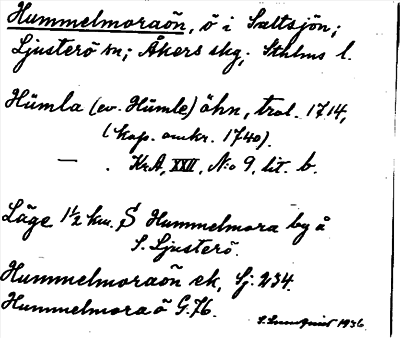 Hummelmoraön, ö i Saltsjön;
Ljusterö sn; Åkers skg; Sthlms l.
Hümla (ev. Hümle) öhn, trol. 1714,
(kop. omkr. 1740).
— . KrA, XXII, N:o 9, lit. b.
Läge 1½ km. S Hummelmora by å
S. Ljusterö.
Hummelmoraön ek, Sj. 234.
Hummelmora ö G. 76.
1936